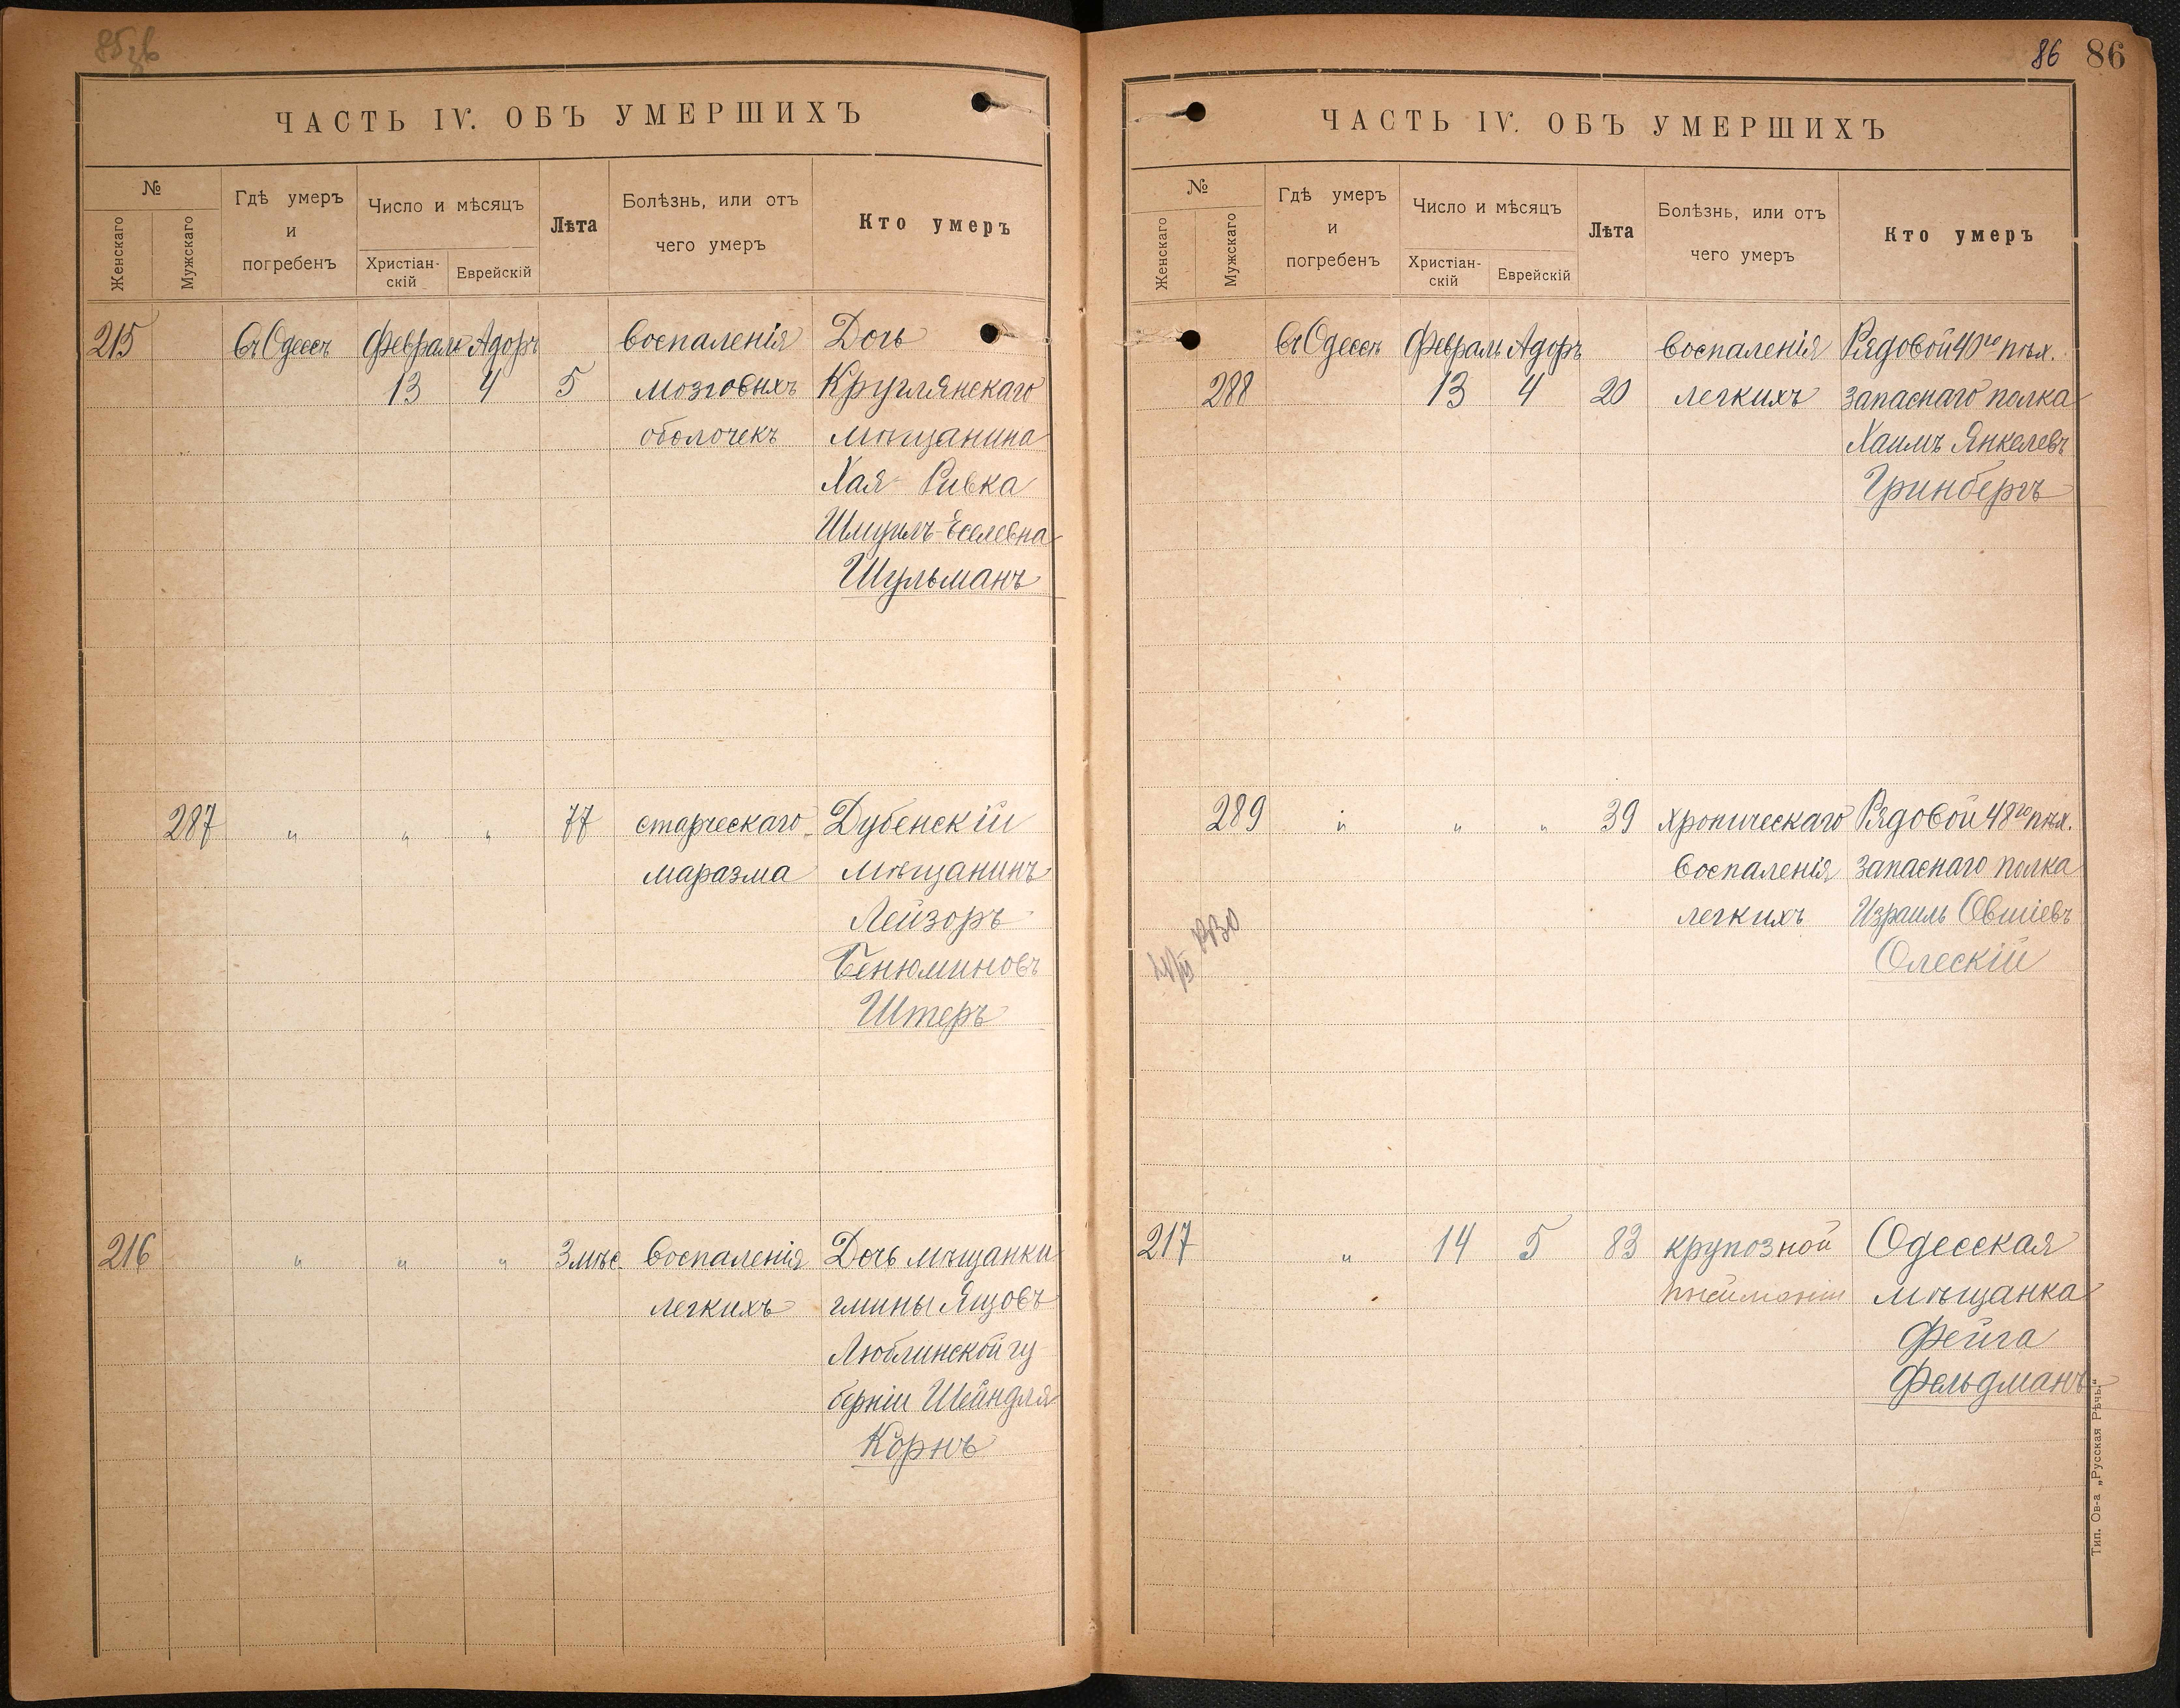 ЧАСТЬ IV. ОБЪ УМЕРШИХЪ
№
Женскаго
Мужскаго
Гдѣ умеръ
и
погребенъ
Число и мѣсяцъ
Христіан-
скій
Еврейскій
Лѣта
Болѣзнь, или отъ
чего умеръ
Кто умеръ
215 въ Одессѣ Февраль Адоръ воспаленія Дочь
13 4 5 мозговыхъ Круглянскаго
оболочекъ мѣщанина
Хая Ривка
Шмуилъ-Еселевна
Шульманъ
287 " " " 77 старческаго Дубенскій
маразма мѣщанинъ
Лейзоръ
Бенюминовъ
Штеръ
216 " " " 3 мѣс. воспаленія Дочь мѣщанки
легкихъ гмины Ящовъ
Люблинской гу
берніи Шейндля
Корнъ
86 86
ЧАСТЬ IV. ОБЪ УМЕРШИХЪ
№
Женскаго
Мужскаго
Гдѣ умеръ
и
погребенъ
Число и мѣсяцъ
Христіан-
скій
Еврейскій
Лѣта
Болѣзнь, или отъ
чего умеръ
Кто умеръ
въ Одессѣ Февраль Адоръ воспаленія Рядовой 40го пѣх.
288 13 4 20 легкихъ запаснаго полка
Хаимъ Янкелевъ
Гринбергъ
289 " " " 39 хроническаго Рядовой 48го пѣх.
воспаленія запаснаго полка
легкихъ Израиль Овшіевъ
Олескій
217 " 14 5 83 крупозной Одесская
мѣщанка
Фейга
Фельдманъ
Тип. Ов-а „Русская Рѣчь."